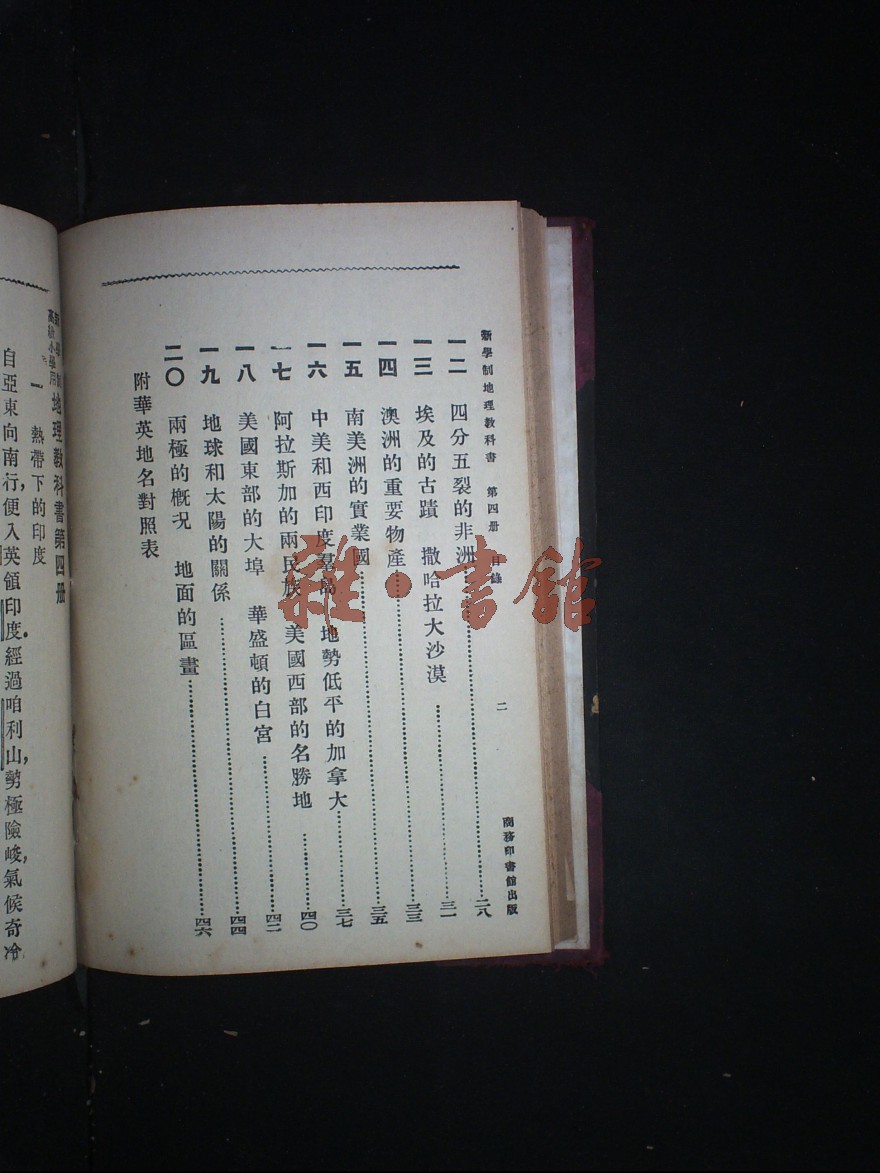 新學制地理教科書　第四册　目錄　二　商務印書館出版
一二　四分五裂的非洲…………二八
一三　埃及的古蹟　撒哈拉大沙漠…………三一
一四　澳洲的重要物產…………三三
一五　南美洲的實業國…………三五
一六　中美和西印度羣島　地勢低平的加拿大…………三七
一七　阿拉斯加的兩民族　美國西部的名勝地…………四〇
一八　美國東部的大埠　華盛頓的白宮…………四二
一九　地球和太陽的關係…………四四
二〇　兩極的概況　地面的區畫…………四六
附華英地名對照表
高級小學用
地理教科書第四册
一　熱帶下的印度
自亞東向南行，便入英領印度．經過咱利山，勢極險峻，氣候奇冷
雜·書館